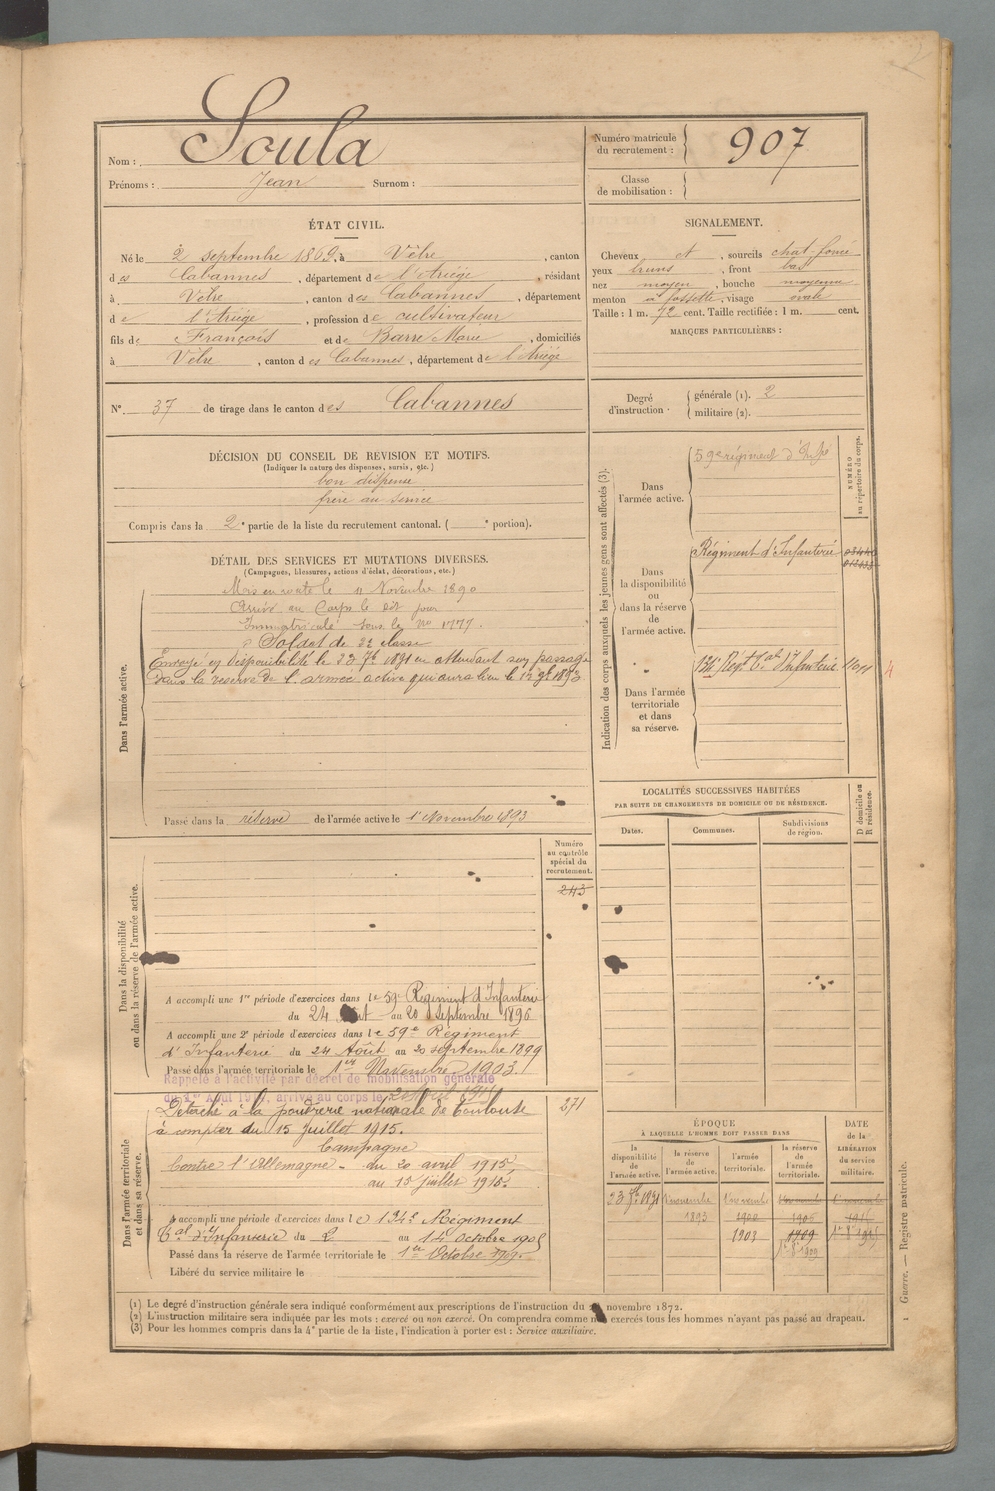 Nom : Soula
Prénoms : Jean Surnom :
Numéro matricule du recrutement : 907
Classe de mobilisation :
ÉTAT CIVIL.
Né le 2 septembre 1869, à Vèbre, canton
des Cabannes, département de l'Ariège résidant
à Vèbre, canton des Cabannes, département
de l'Ariège, profession de cultivateur
fils de François et de Barre Marie, domiciliés
à Vèbre, canton des Cabannes, département de l'Ariège
SIGNALEMENT.
Cheveux et, sourcils chat. foncé
yeux bruns, front bas
nez moyen, bouche moyenne
menton à fossette, visage ovale
Taille : 1 m. 72 cent. Taille rectifiée : 1 m. cent.
MARQUES PARTICULIÈRES :
N° 37 de tirage dans le canton des Cabannes
Degré d'instruction { générale (1). 2
militaire (2).
DÉCISION DU CONSEIL DE RÉVISION ET MOTIFS.
(Indiquer la nature des dispenses, sursis, etc.)
bon dispensé
frère au service
Compris dans la 2e partie de la liste du recrutement cantonal. ( e portion).
DÉTAIL DES SERVICES ET MUTATIONS DIVERSES.
(Campagnes, blessures, actions d'éclat, décorations, etc.)
Dans l'armée active.
Mis en route le 11 Novembre 1890
Arrivé au Corps le dit jour
Immatriculé sous le no 1777.
Soldat de 2e classe
Envoyé en disponibilité le 23 7bre 1891 en attendant son passage
dans la réserve de l'armée active qui aura lieu le 1er 9bre 1893
Passé dans la réserve de l'armée active le 1er Novembre 1893
Indication des corps auxquels les jeunes gens sont affectés (3).
NUMÉRO au répertoire du corps.
Dans l'armée active.
59e régiment d'Infie
Dans la disponibilité ou dans la réserve de l'armée active.
Régiment d'Infanterie
Dans l'armée territoriale et dans sa réserve.
134e Regt Tal d'Infanterie 1011
4
LOCALITÉS SUCCESSIVES HABITÉES
PAR SUITE DE CHANGEMENTS DE DOMICILE OU DE RÉSIDENCE.
Dates. Communes. Subdivisions de région. D domicile ou R résidence.
Numéro au contrôle spécial du recrutement.
243
Dans la disponibilité ou dans la réserve de l'armée active.
A accompli une 1re période d'exercices dans le 59e Régiment d'Infanterie
du 24 Août au 20 Septembre 1896
A accompli une 2e période d'exercices dans le 59e Régiment
d'Infanterie du 24 Août au 20 septembre 1899
Passé dans l'armée territoriale le 1er Novembre 1903.
Rappelé à l'activité par décret de mobilisation générale
du 1er Août 1914, arrivé au corps le 20 Avril
271
Dans l'armée territoriale et dans sa réserve.
Détaché à la poudrerie nationale de Toulouse
à compter du 15 juillet 1915.
Campagne
Contre l'Allemagne - du 20 avril 1915
au 15 juillet 1915.
A accompli une période d'exercices dans le 134e Régiment
Tal d'Infanterie du 2 au 14 Octobre 1905
Passé dans la réserve de l'armée territoriale le 1er Octobre 1909
Libéré du service militaire le
ÉPOQUE
À LAQUELLE L'HOMME DOIT PASSER DANS
la disponibilité de l'armée active. la réserve de l'armée active. l'armée territoriale. la réserve de l'armée territoriale. DATE de la LIBÉRATION du service militaire.
23 7bre 1891 1 novembre 1 novembre 1 novembre 1 novembre
1893 1900 1906 1915
1903 1909
1er 8bre 1909
(1) Le degré d'instruction générale sera indiqué conformément aux prescriptions de l'instruction du novembre 1872.
(2) L'instruction militaire sera indiquée par les mots : exercé ou non exercé. On comprendra comme non exercés tous les hommes n'ayant pas passé au drapeau.
(3) Pour les hommes compris dans la 4e partie de la liste, l'indication à porter est : Service auxiliaire.
1 Guerre. — Registre matricule.